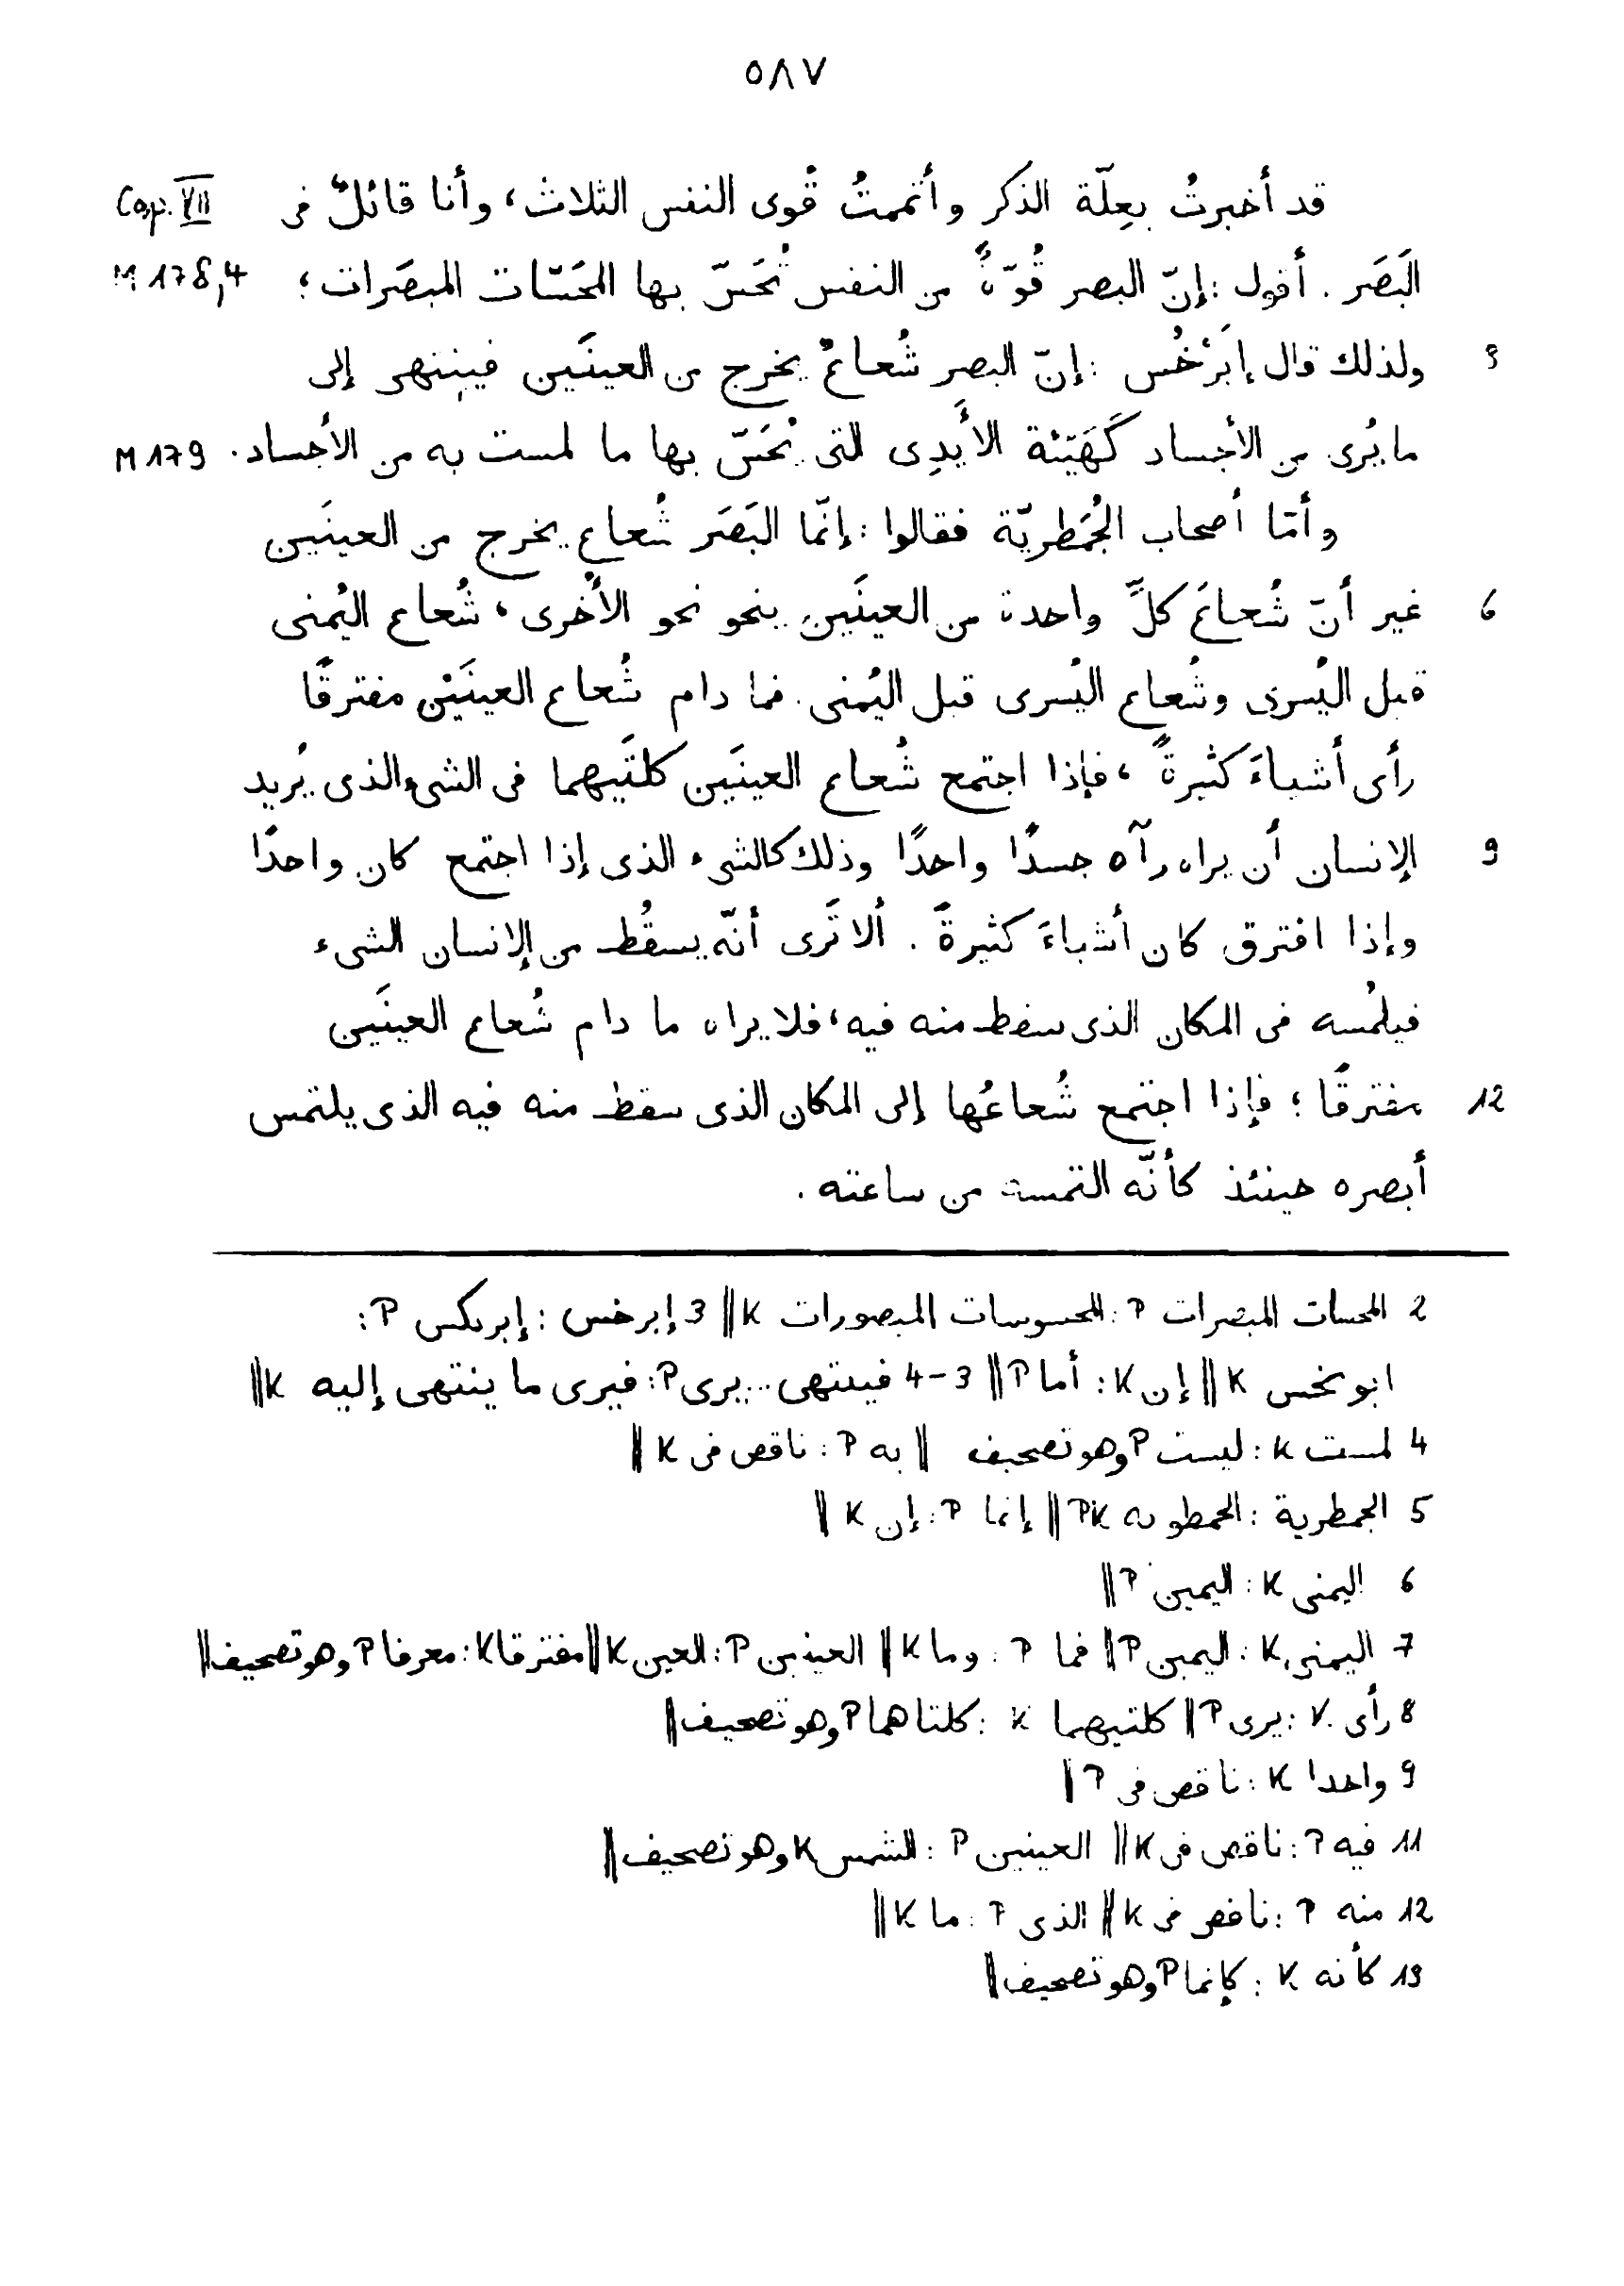 ٥٨٧
قد أخبرتُ بعِلّة الذكر وأتممتُ قُوى النفس الثلاث، وأنا قائلٌ فى Cap. VII
البَصَر . أقول : إنّ البصر قُوّةً من النفس تُحَسّ بها المَحَسّات المبصَرات؛ M 178,4
ولذلك قال إبَرْخُس : إنّ البصر شُعاعٌ يخرج من العينَين فينتهى إلى 3
ما يُرى من الأجساد كَهَيَئة الأَيدِى التى نُحَسّ بها ما لمست به من الأجساد. M 179
وأمّا أصحاب الجُمَطريّة فقالوا : إنّما البَصَر شُعاع يخرج من العينَين
غير أنّ شُعاعَ كلّ واحدة من العينَين ينحو نحو الأُخرى، شُعاع اليُمنى 6
قبل اليُسرى وشُعاع اليُسرى قبل اليُمنى. فما دام شُعاع العينَيْن مفترقًا
رأى أشياءَ كثيرةً، فإذا اجتمع شُعاع العينَين كلتَيهما فى الشىء الذى يُريد
الإنسان أن يراه رآه جسدًا واحدًا وذلك كالشىء الذى إذا اجتمع كان واحدًا 9
وإذا افترق كان أشياءَ كثيرةً . ألا تَرى أنّه يسقُط من الإنسان الشىء
فيلمُسه فى المكان الذى سقط منه فيه، فلا يراه ما دام شُعاع العينَين
مفترقًا؛ فإذا اجتمع شُعاعُها إلى المكان الذى سقط منه فيه الذى يلتمس 12
أبصره حينئذ كأنّه التمسه من ساعته .
2 المحسات المبصرات P : المحسوسات المبصورات K || 3 إبرخس : إبرىكس P :
ابو نخس K || إن K : أما P || 3–4 فينتهى...يرى P : فيرى ما ينتهى إليه K ||
4 لمست K : ليست P وهو تصحيف || به P : ناقص فى K ||
5 الجمطرية : الحمطو ىه PK || إنما P : إن K ||
6 اليمنى K : اليمين P ||
7 اليمنى K : اليمين P || فما P : وما K || العينين P : العين K || مفترقا K : معرفا P وهو تصحيف ||
8 رأى K : يرى P || كلتيهما K : كلتاهما P وهو تصحيف ||
9 واحدا K : ناقص فى P ||
11 فيه P : ناقص فى K || العينين P : الشمس K وهو تصحيف ||
12 منه P : ناقص فى K || الذى P : ما K ||
13 كأنه K : كإنما P وهو تصحيف ||